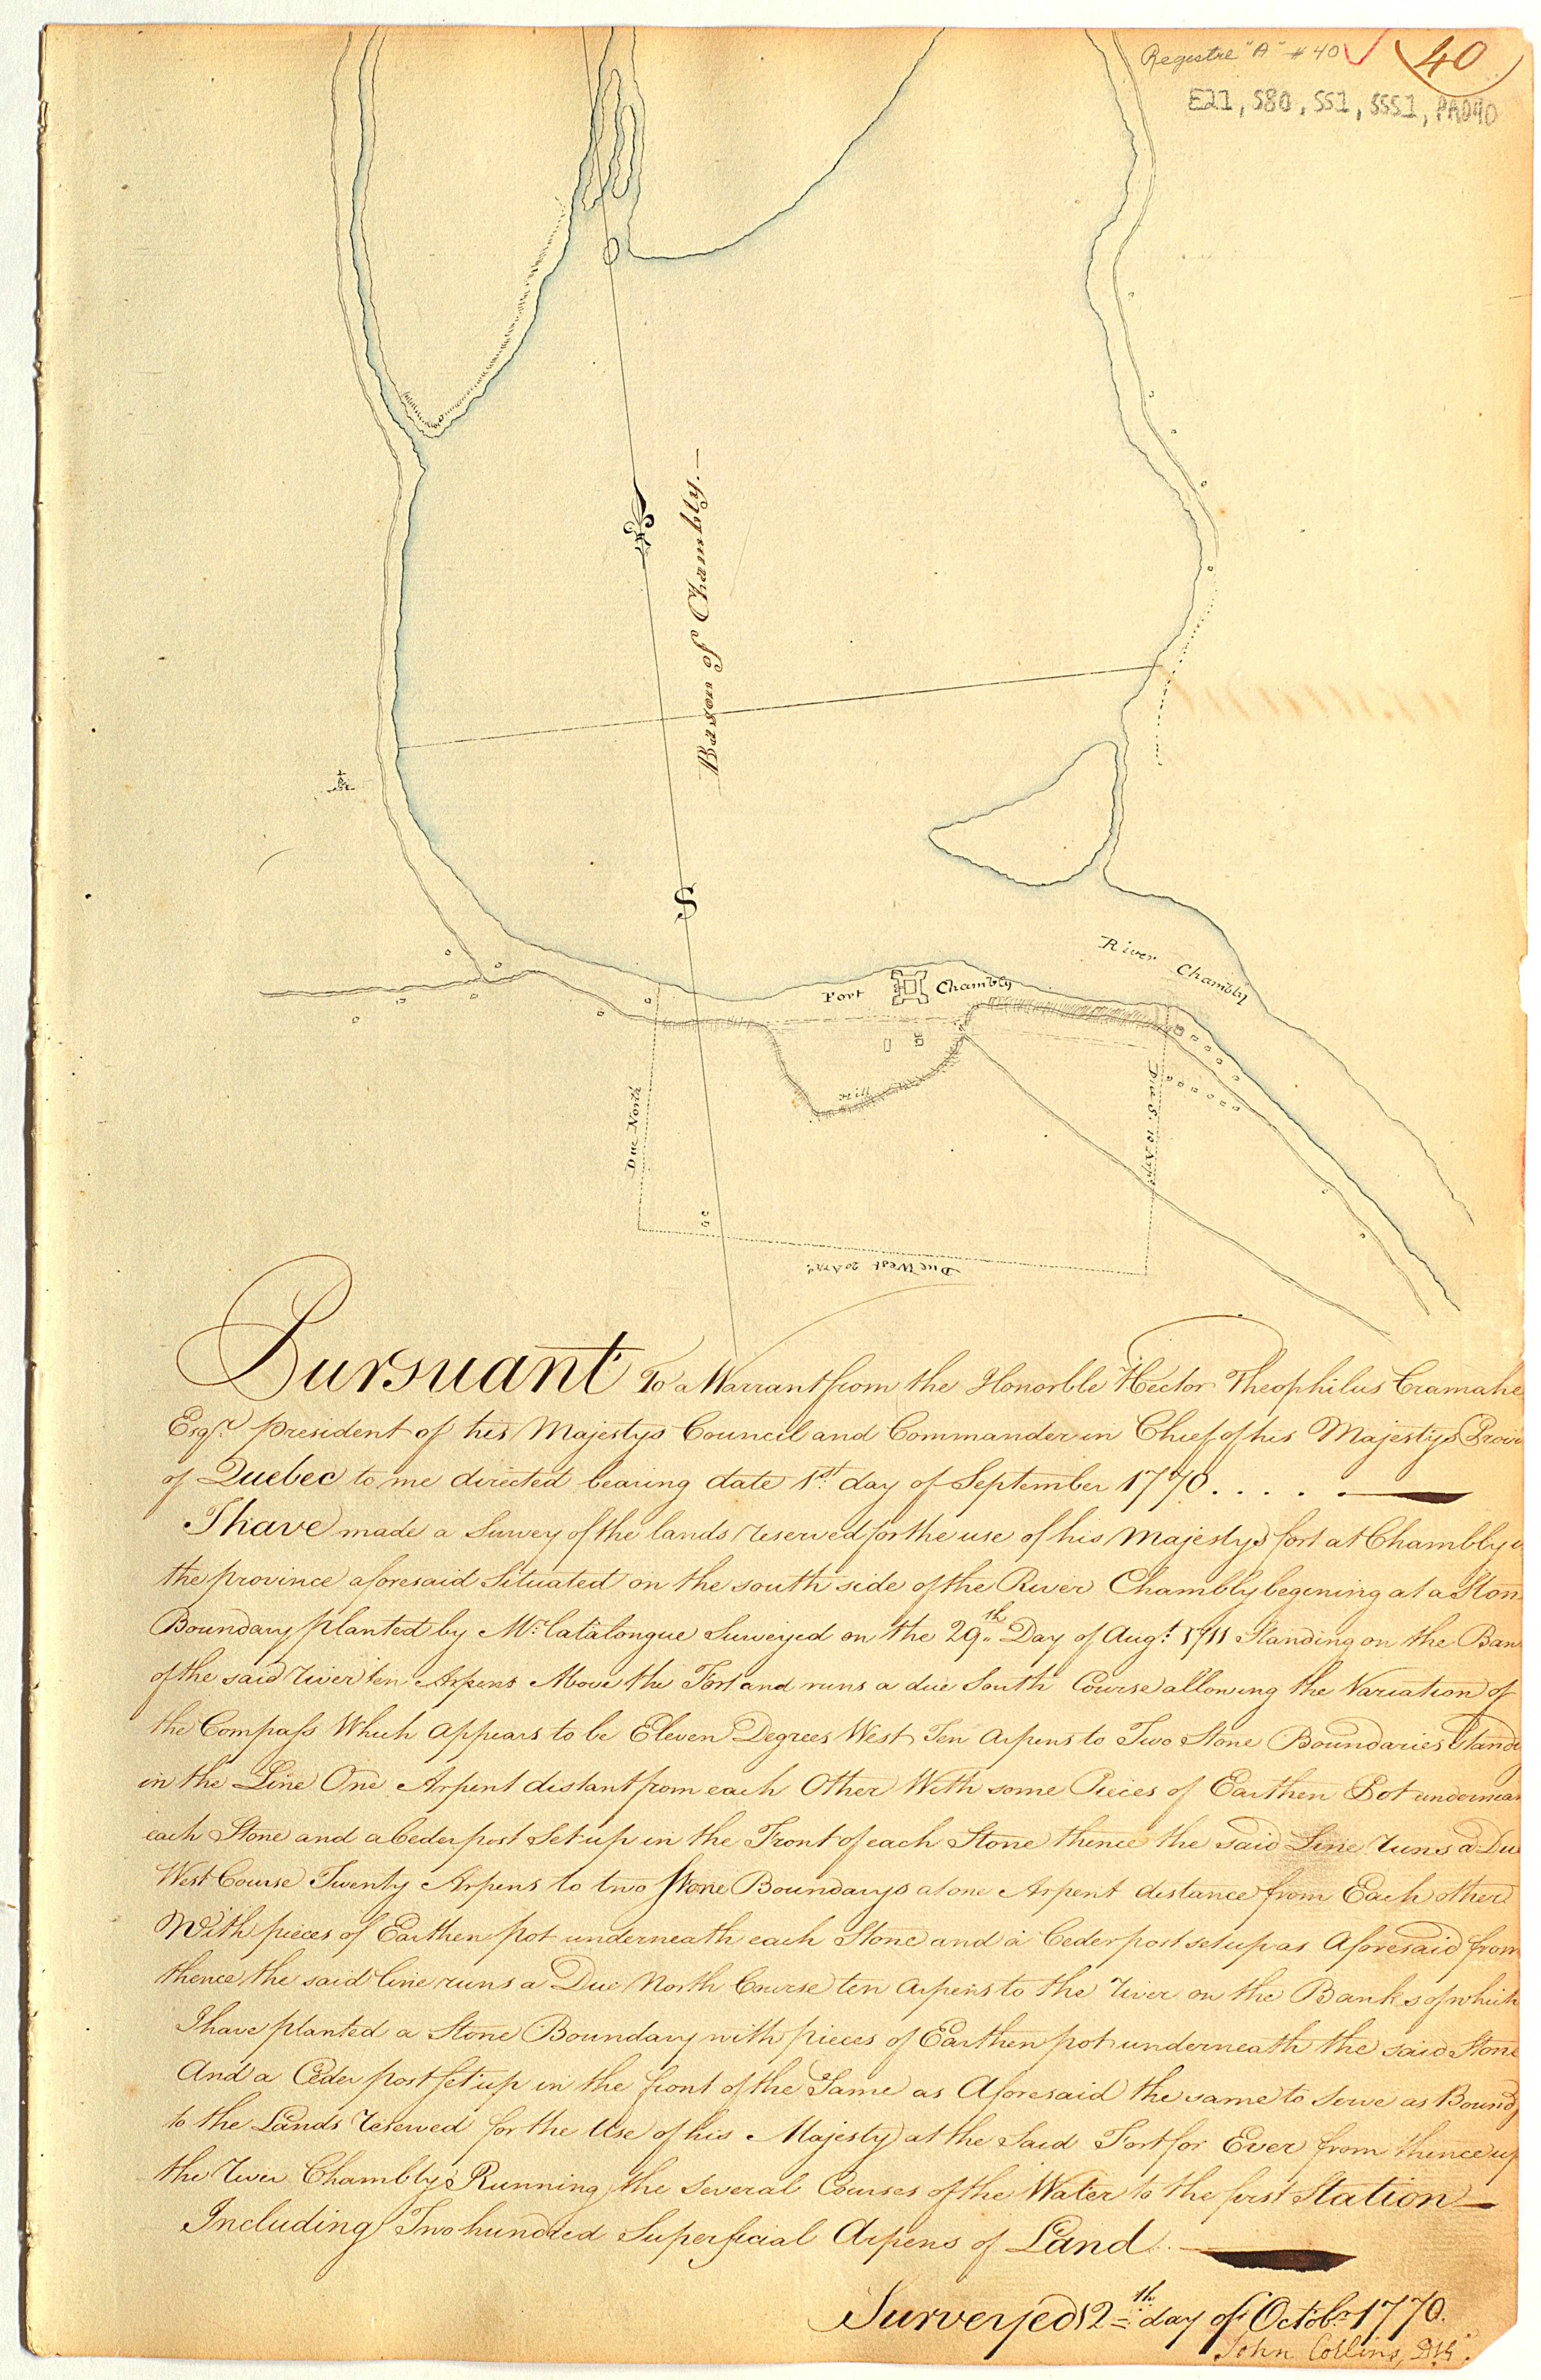 Registre "A" # 40
40
E21, S80, SS1, SSS1, PA040
Bason of Chambly.
S
River Chambly
Fort Chambly
Hill
Due North
Due S. 10 Arps
Due West 20 Arps
Pursuant To a Warrant from the Honorble Hector Theophilus Cramahe
Esqr. president of his Majestys Council and Commander in Chief of his Majestys Provin
of Quebec to me directed bearing date 1st day of September 1770.....
I have made a Survey of the lands reserved for the use of his Majestys fort at Chambly
the province aforesaid Situated on the south side of the River Chambly begining at a Ston
Boundary planted by Mr. Catalongue Surveyed on the 29th Day of Augt. 1711 Standing on the Ban
of the said river ten Arpens Above the Fort and runs a due South Course allowing the Variation of
the Compass Which appears to be Eleven Degrees West Ten Arpens to Two Stone Boundaries Standi
in the Line One Arpent distant from each Other With some Pieces of Earthen Pot undernea
each Stone and a Ceder post Set up in the Front of each Stone thence the said Line runs a Du
West Course Twenty Arpens to two Stone Boundarys at one Arpent distance from Each other
With pieces of Earthen pot underneath each Stone and a Ceder post set up as Aforesaid from
thence the said line runs a Due North Course ten Arpens to the river on the Banks of which
I have planted a Stone Boundary with pieces of Earthen pot underneath the said Stone
And a Ceder post Set up in the front of the Same as Aforesaid the same to Serve as Bound
to the Lands reserved for the Use of his Majesty at the Said Fort for Ever from thence up
the river Chambly Running the Several Courses of the Water to the first Station
Including Two hundred Superficial Arpens of Land.
Surveyed 12th day of Octobr 1770.
John Collins, D.S.G.